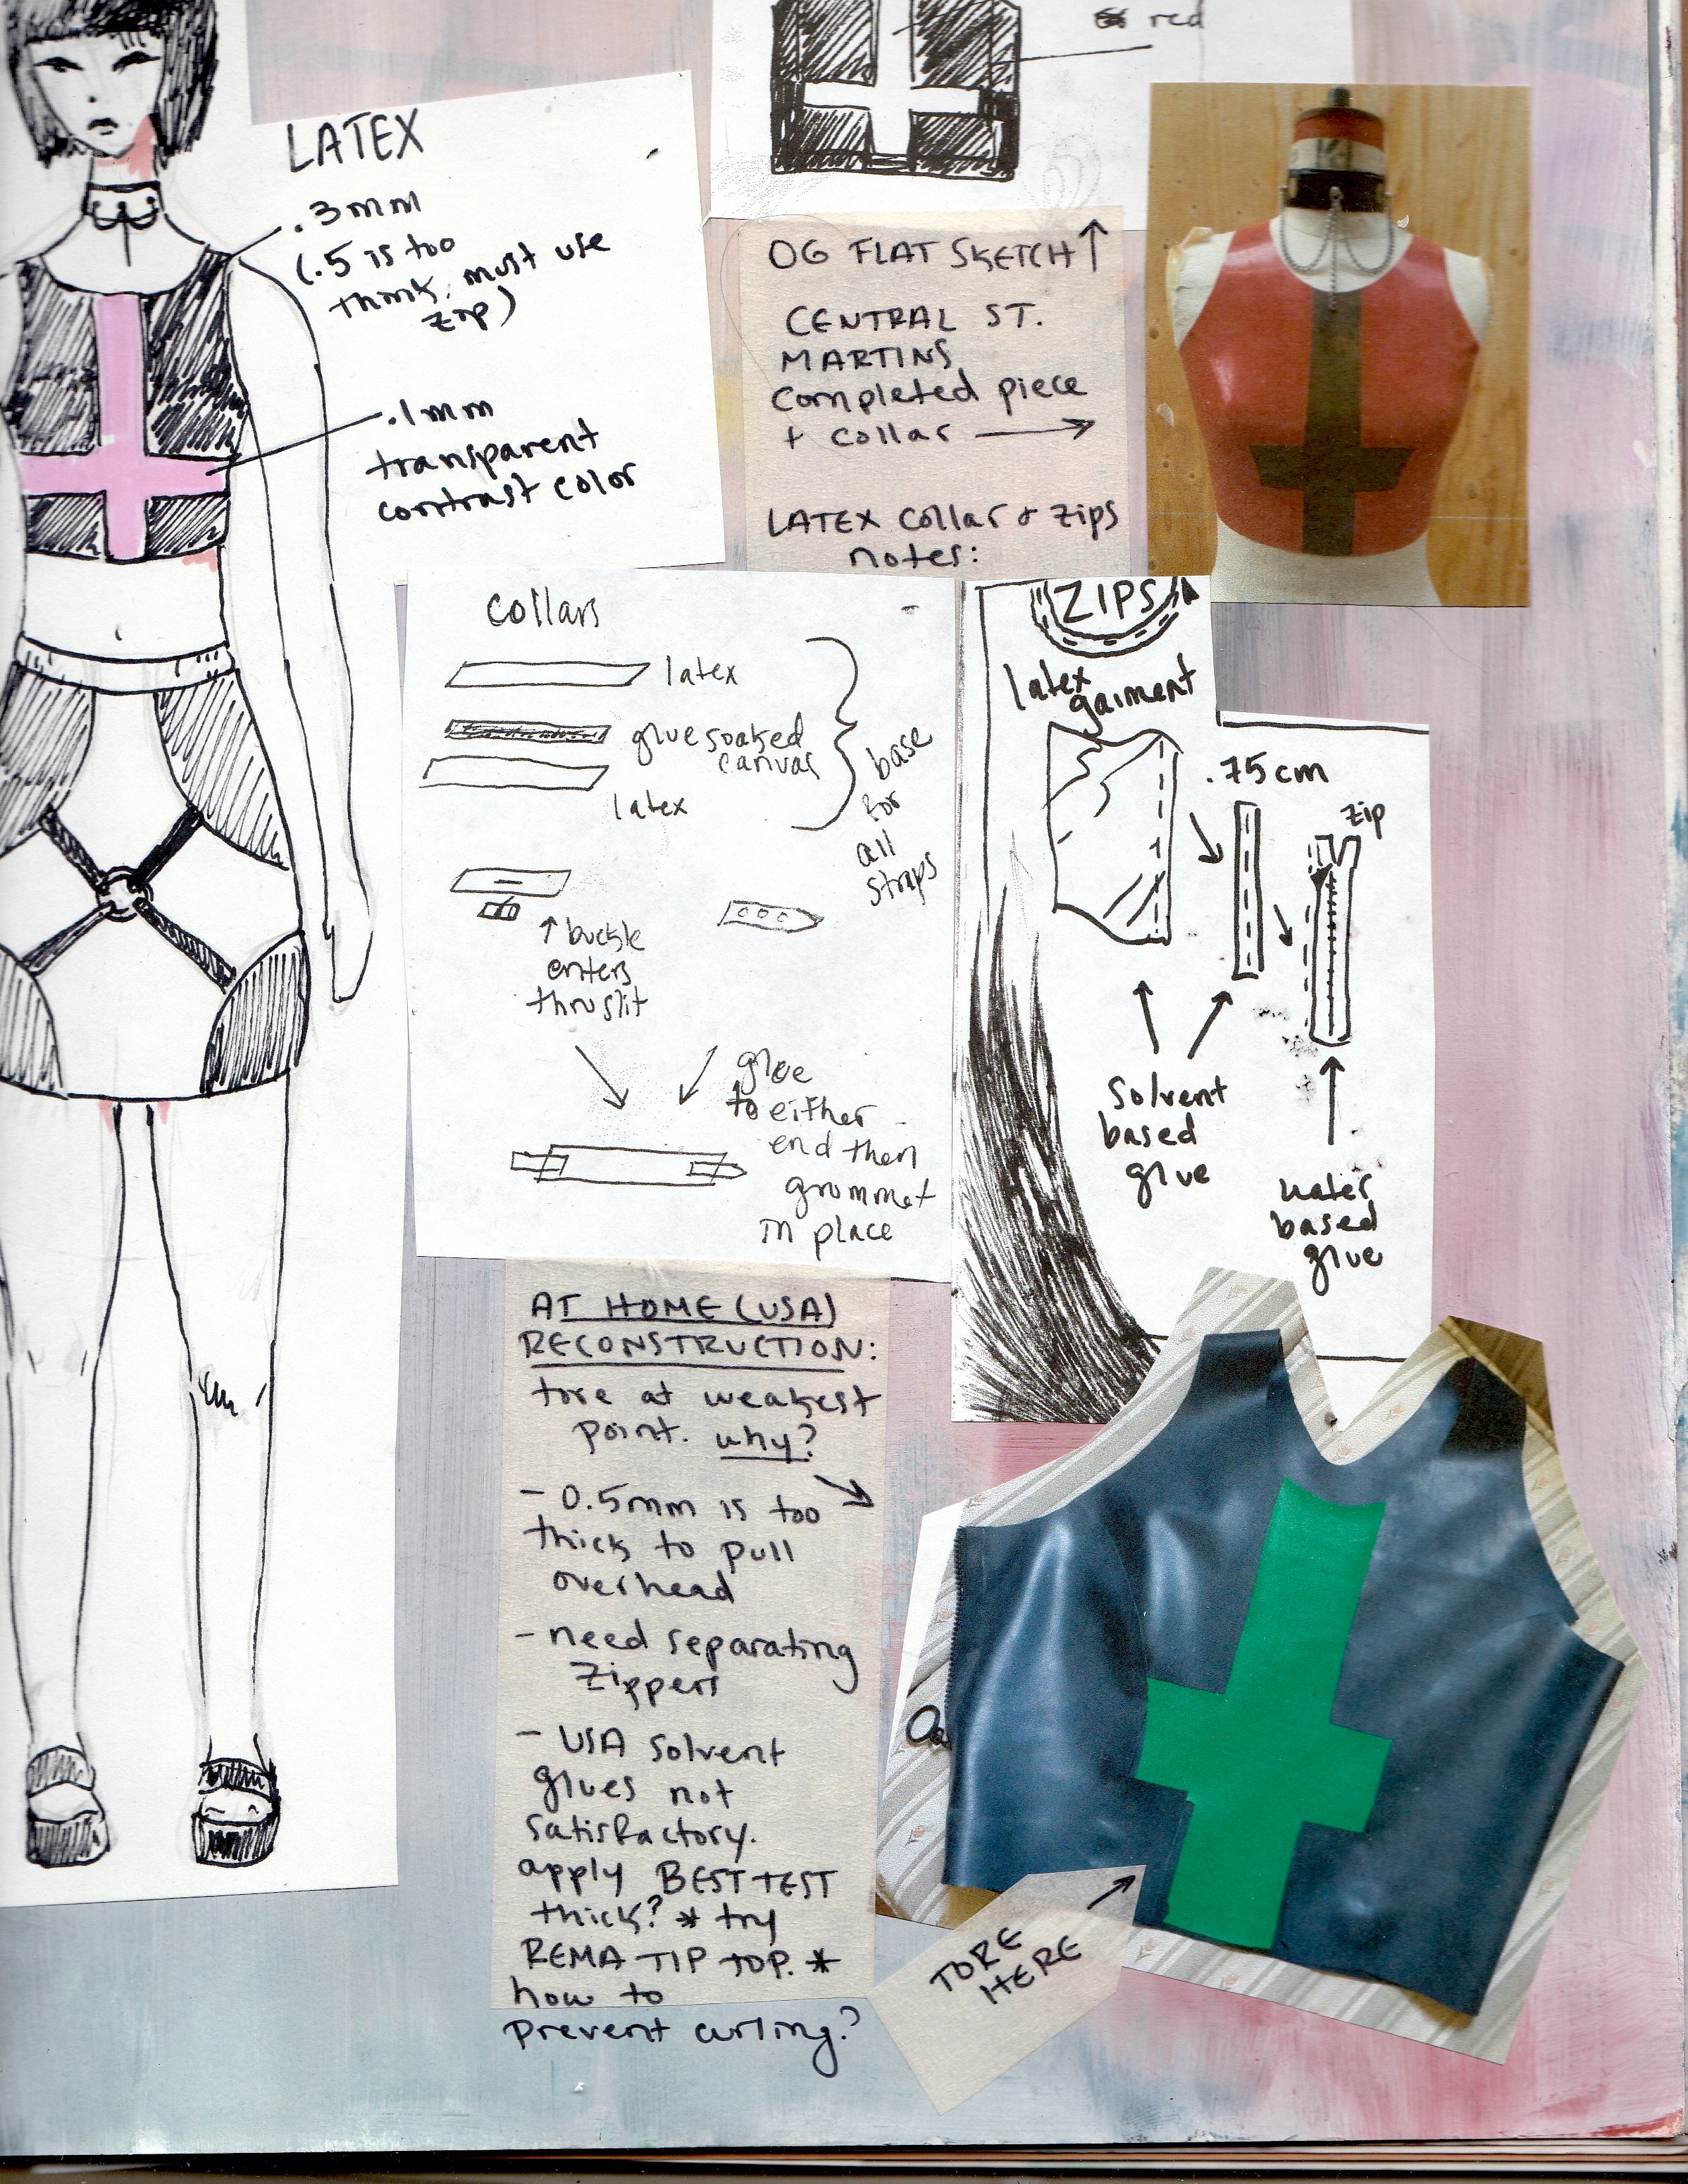 red
LATEX
.3mm
(.5 is too
think, must use
zip)
.1mm
transparent
contrast color
OG FLAT SKETCH
CENTRAL ST.
MARTINS
completed piece
+ collar
LATEX collar & zips
notes:
collars
latex
glue soaked
canvas
latex
base
for
all
straps
buckle
enters
thru slit
glue
to either
end then
grommet
in place
ZIPS
latex
garment
.75cm
zip
Solvent
based
glue
water
based
glue
AT HOME (USA)
RECONSTRUCTION:
tore at weakest
point. why?
- 0.5mm is too
thick to pull
overhead
- need separating
zippers
- USA solvent
glues not
satisfactory.
apply BEST TEST
thick? * try
REMA TIP TOP. *
how to
prevent curling?
TORE
HERE